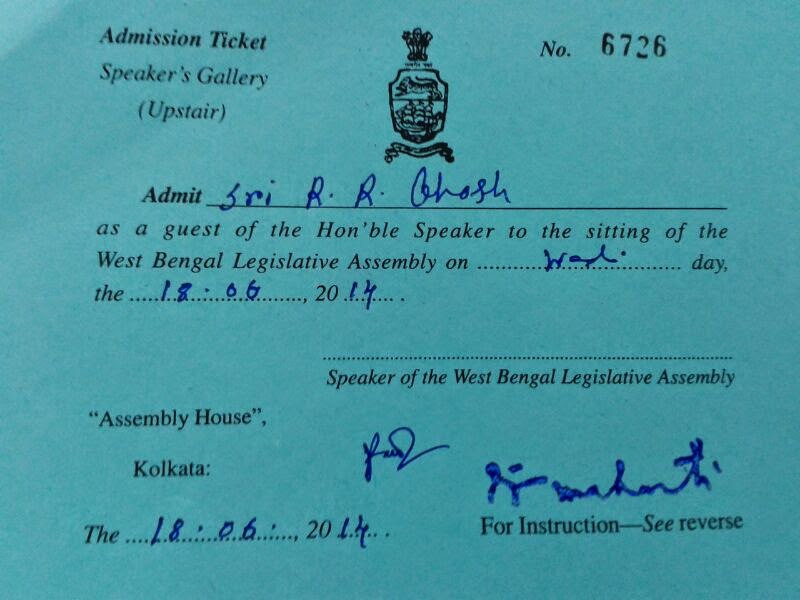 Admission Ticket
Speaker's Gallery
(Upstair)
No. 6726
Admit Sri R. R. Ghosh
as a guest of the Hon'ble Speaker to the sitting of the
West Bengal Legislative Assembly on ..................... day,
the .....18.06......, 2014... .
Speaker of the West Bengal Legislative Assembly
"Assembly House",
Kolkata:
The ....18.06....., 2014.. .
For Instruction—See reverse